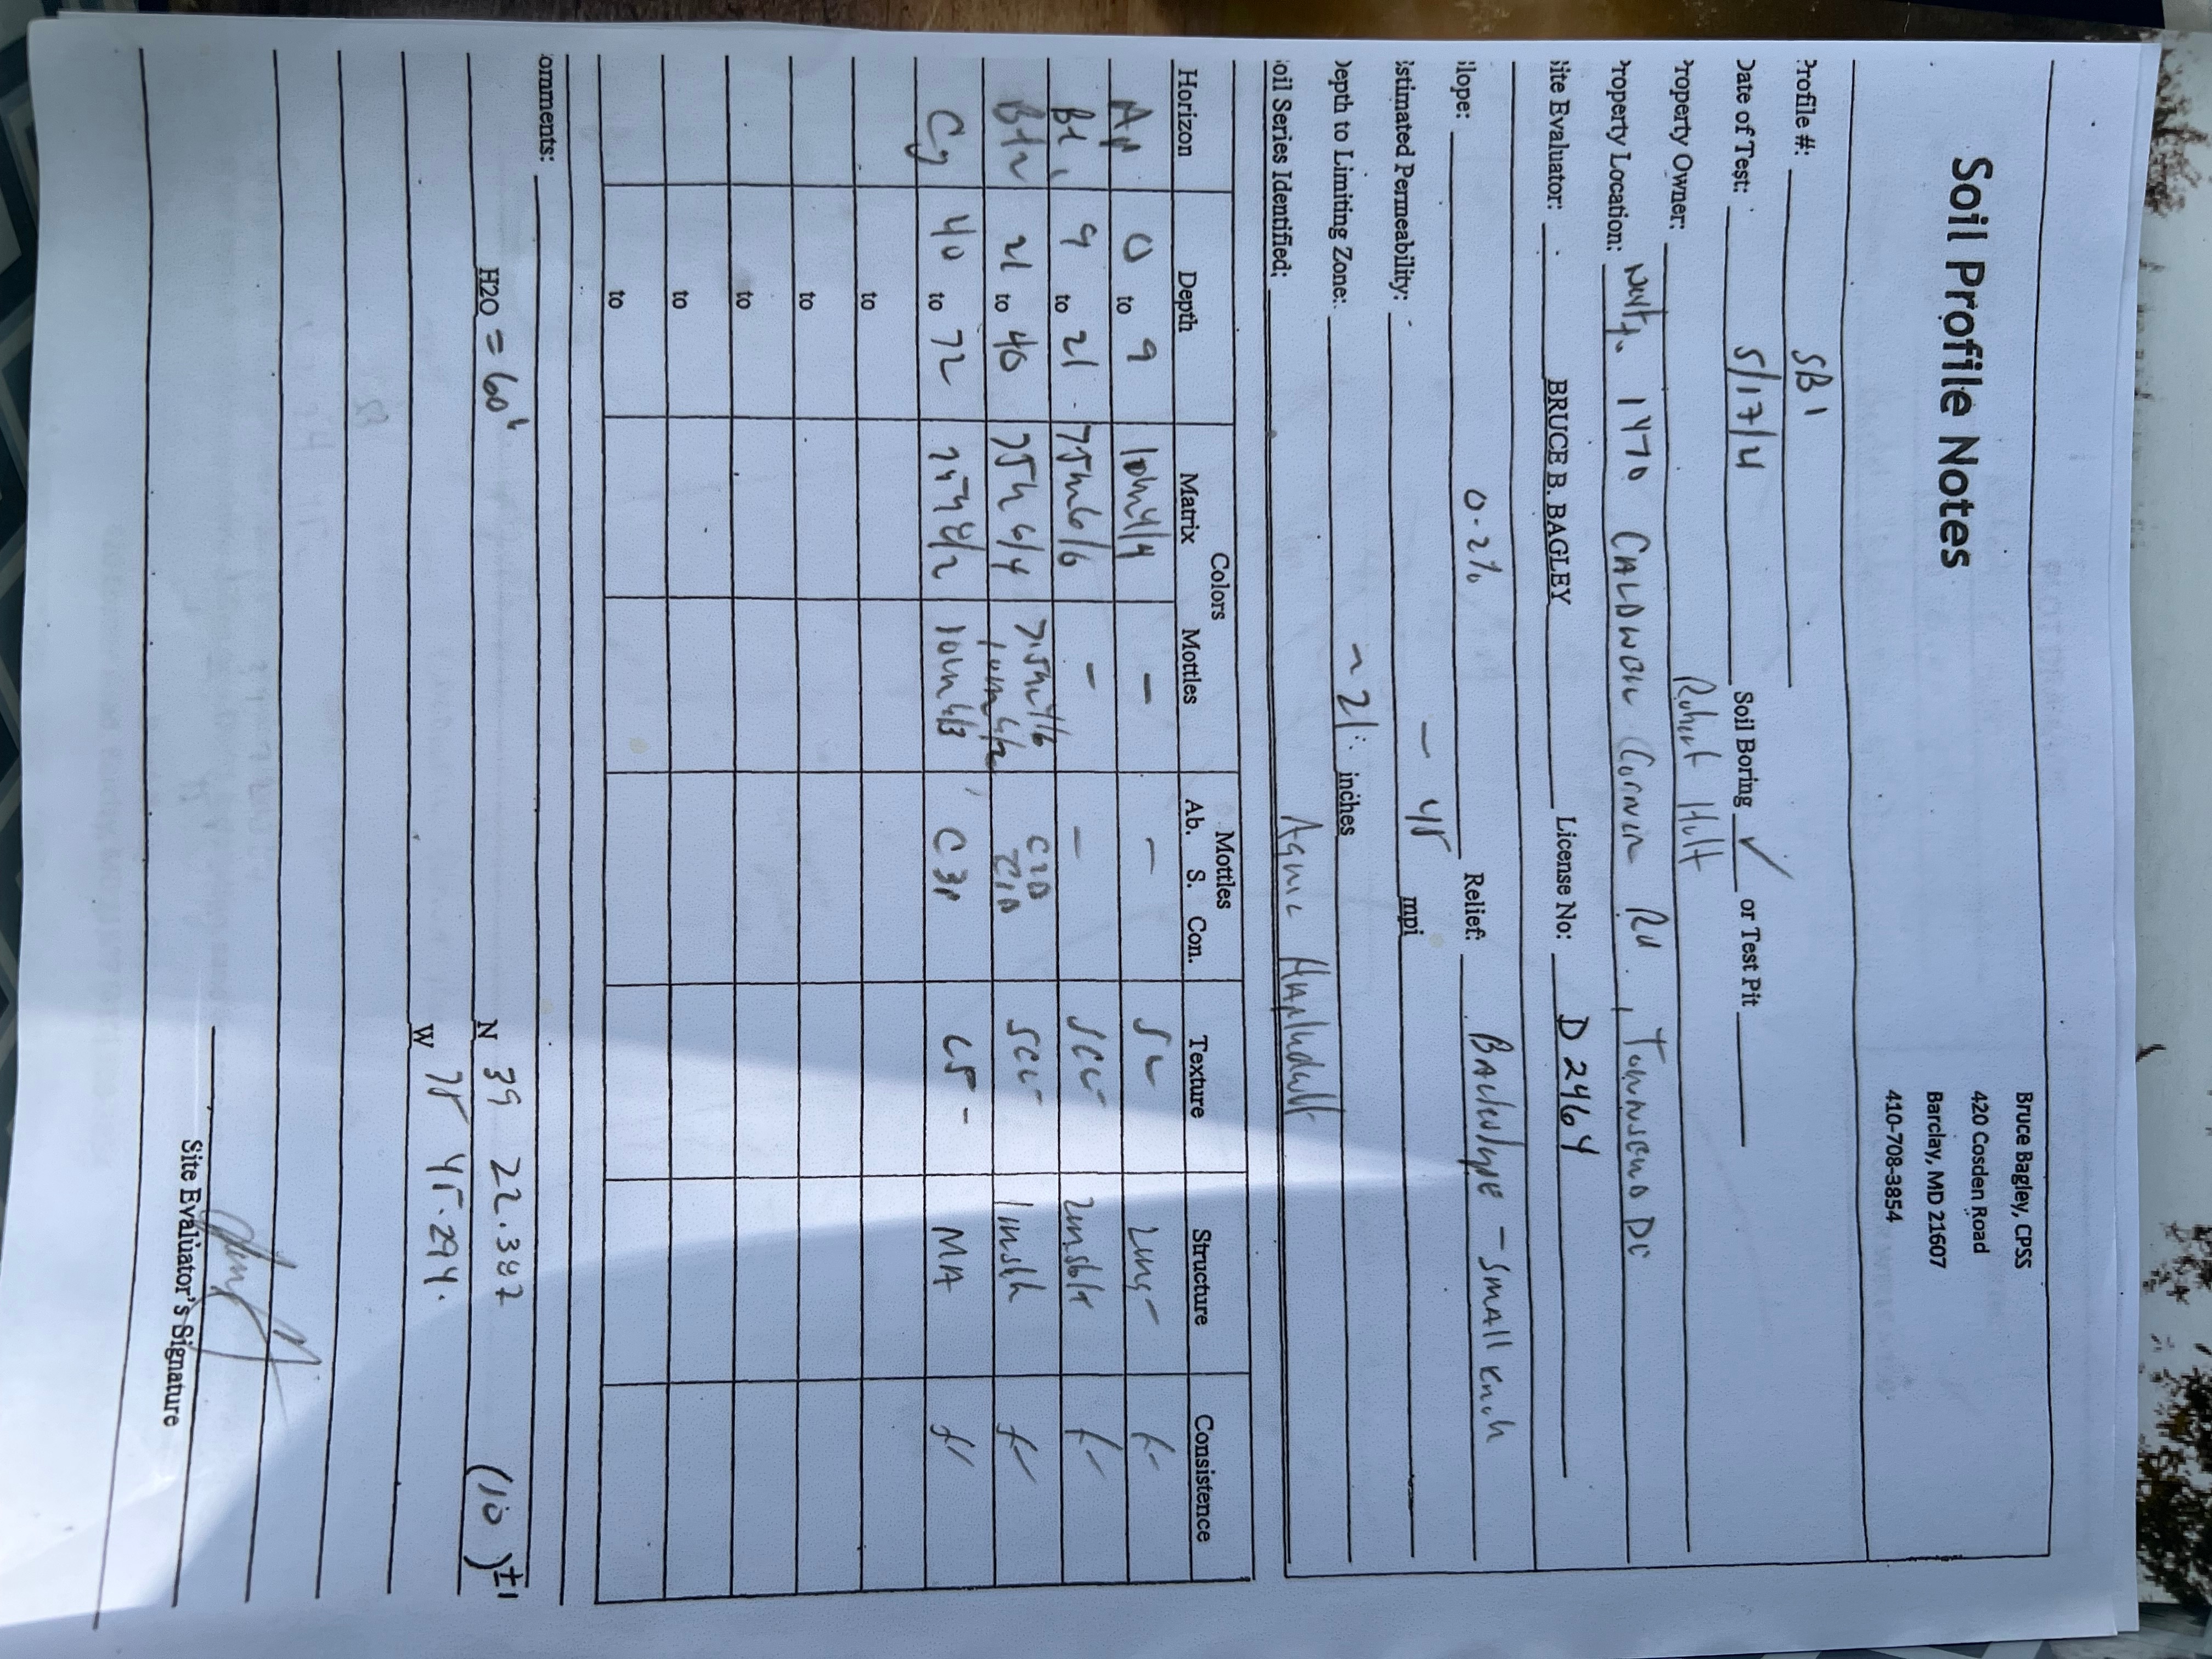 Soil Profile Notes
Bruce Bagley, CPSS
420 Cosden Road
Barclay, MD 21607
410-708-3854
Profile #: SB 1
Date of Test: 5/17/4 Soil Boring ✓ or Test Pit
Property Owner: Robert Hult
Property Location: 1470 CALDWELL Corner Rd, Townsend DE
Site Evaluator: BRUCE B. BAGLEY License No: D 2464
Slope: 0-2% Relief: Backslope - small knoll
Estimated Permeability: - 45 mpi
Depth to Limiting Zone: ~ 21" inches
Soil Series Identified: Aquic Hapludult
Colors Mottles
Horizon Depth Matrix Mottles Ab. S. Con. Texture Structure Consistence
Ap 0 to 9 10YR 4/4 - - SL
Bt1 9 to 21 7.5YR 6/6 - - SCL 2msbk
Bt2 21 to 40 7.5YR 6/4 7.5YR 4/6 C2D SCL 1msbk
10YR 6/2 C1D
Cg 40 to 72 10YR 6/3 C3P LS MA
to
to
to
to
to
Comments:
H2O = 60" N 39 22.387 (10) ±1
W 75 45.294
Site Evaluator's Signature